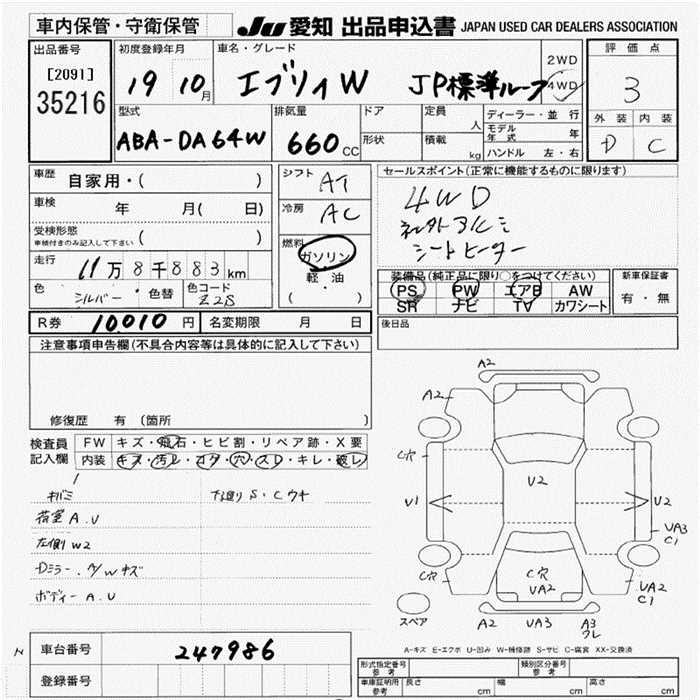 車内保管・守衛保管
JU 愛知 出品申込書 JAPAN USED CAR DEALERS ASSOCIATION
出品番号
[2091]
35216
初度登録年月
19 10月
車名・グレード
エブリィW JP標準ルーフ
2WD
4WD
評価点
3
外装 内装
D C
型式
ABA-DA64W
排気量
660cc
ドア
形状
定員
人
積載
kg
ディーラー・並行
モデル年式 年
ハンドル 左・右
車歴 自家用・( )
車検 年 月( 日)
受検形態
車検付きのみ記入して下さい ( )
走行 11万8千883km
色 シルバー・色替
色コード
Z2S
シフト AT
冷房 AC
燃料
ガソリン
軽油
( ・ )
セールスポイント(正常に機能するものに限ります)
4WD
シートヒーター
装備品(純正品に限り○をつけてください)
PS PW エアB AW
SR ナビ TV カワシート
新車保証書
有・無
R券 10010円 名変期限 月 日
後日品
注意事項申告欄(不具合内容等は具体的に記入して下さい)
修復歴 有 (箇所 )
検査員記入欄
FW キズ・飛石・ヒビ割・リペア跡・X要
内装 キズ・汚レ・コゲ・穴・スレ・キレ・破レ
キバミ 下廻りS・Cウキ
荷室A.U
左側W2
Dミラー.A/Wキズ
ボディーA.U
A2
A2
C穴
V1
U2
U2
UA3
C1
C穴
C穴
UA2
UA2
C1
スペア
A2 UA3 A3
ワレ
A-キズ E-エクボ U-凹み W-補修跡 S-サビ C-腐食 XX-交換済
車台番号 247986
登録番号
形式指定番号
参考
類別区分番号
参考
車庫証明用
参考
長さ cm 幅 cm 高さ cm